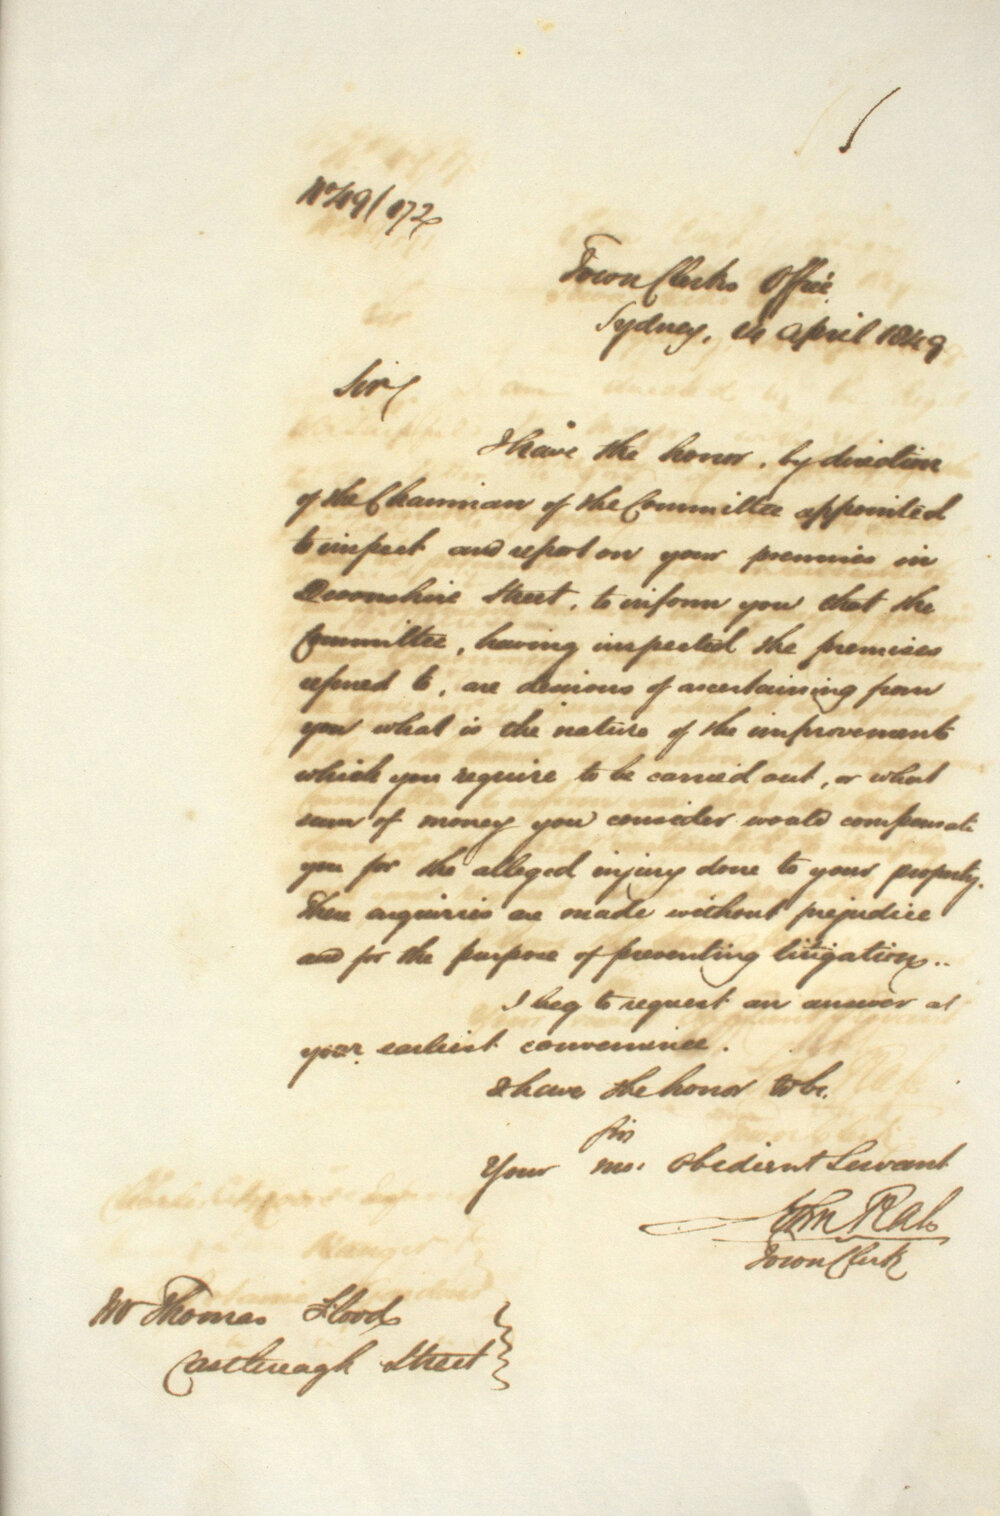 No 49/172
Town Clerks Office
Sydney, 14 April 1849
Sir
I have the honor, by direction
of the Chairman of the Committee appointed
to inspect and report on your premises in
Devonshire Street, to inform you that the
Committee, having inspected the premises
referred to, are desirous of ascertaining from
you what is the nature of the improvements
which you require to be carried out, or what
sum of money you consider would compensate
you for the alleged injury done to your property.
These enquiries are made without prejudice
and for the purpose of preventing litigation..
I beg to request an answer at
your earliest convenience.
I have the honor to be.
Sir
Your mo: Obedient Servant
John Rae
Town Clerk
Mr Thomas Flood
Castlereagh Street